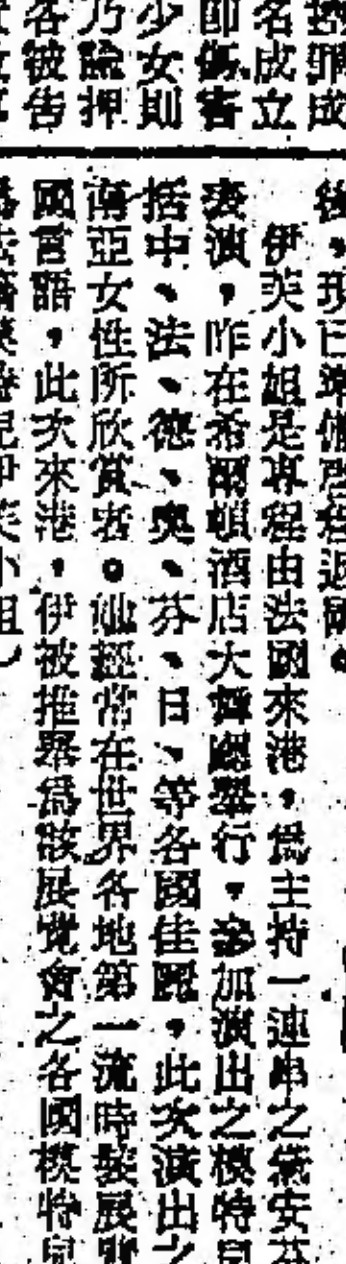 名成立
即傷害
少女則
乃諭押
各被告
後，現已準備啟程返國。
伊芙小姐是專程由法國來港，爲主持一連串之黛安芬
表演，昨在希爾頓酒店大舞廳舉行，參加演出之模特兒
括中、法、德、奧、芬、日、等各國佳麗，此次演出之
南亞女性所欣賞者。她經常在世界各地第一流時裝展覽
國言語，此次來港，伊被推舉爲該展覽會之各國模特兒
伊芙小姐